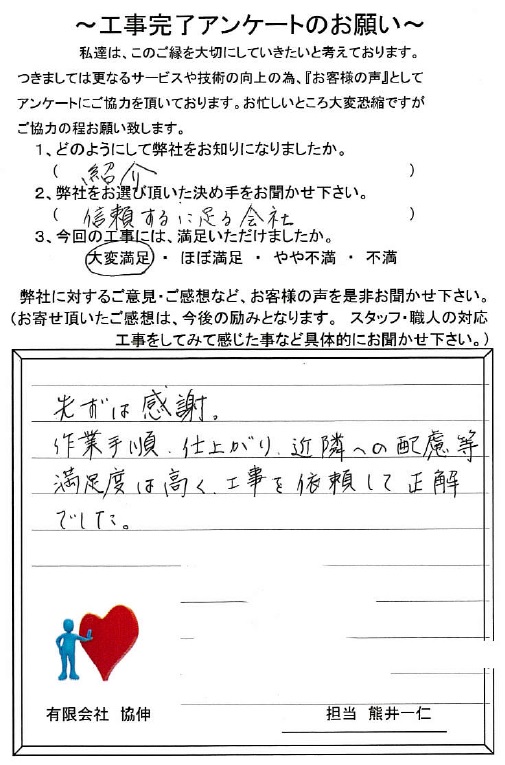 ～工事完了アンケートのお願い～
私達は、このご縁を大切にしていきたいと考えております。
つきましては更なるサービスや技術の向上の為、『お客様の声』として
アンケートにご協力を頂いております。お忙しいところ大変恐縮ですが
ご協力の程お願い致します。
1、どのようにして弊社をお知りになりましたか。
( 紹介 )
2、弊社をお選び頂いた決め手をお聞かせ下さい。
( 信頼するに足る会社 )
3、今回の工事には、満足いただけましたか。
大変満足 ・ ほぼ満足 ・ やや不満 ・ 不満
弊社に対するご意見・ご感想など、お客様の声を是非お聞かせ下さい。
(お寄せ頂いたご感想は、今後の励みとなります。 スタッフ・職人の対応
工事をしてみて感じた事など具体的にお聞かせ下さい。)
先ずは感謝。
作業手順、仕上がり、近隣への配慮等
満足度は高く、工事を依頼して正解
でした。
有限会社 協伸
担当 熊井一仁